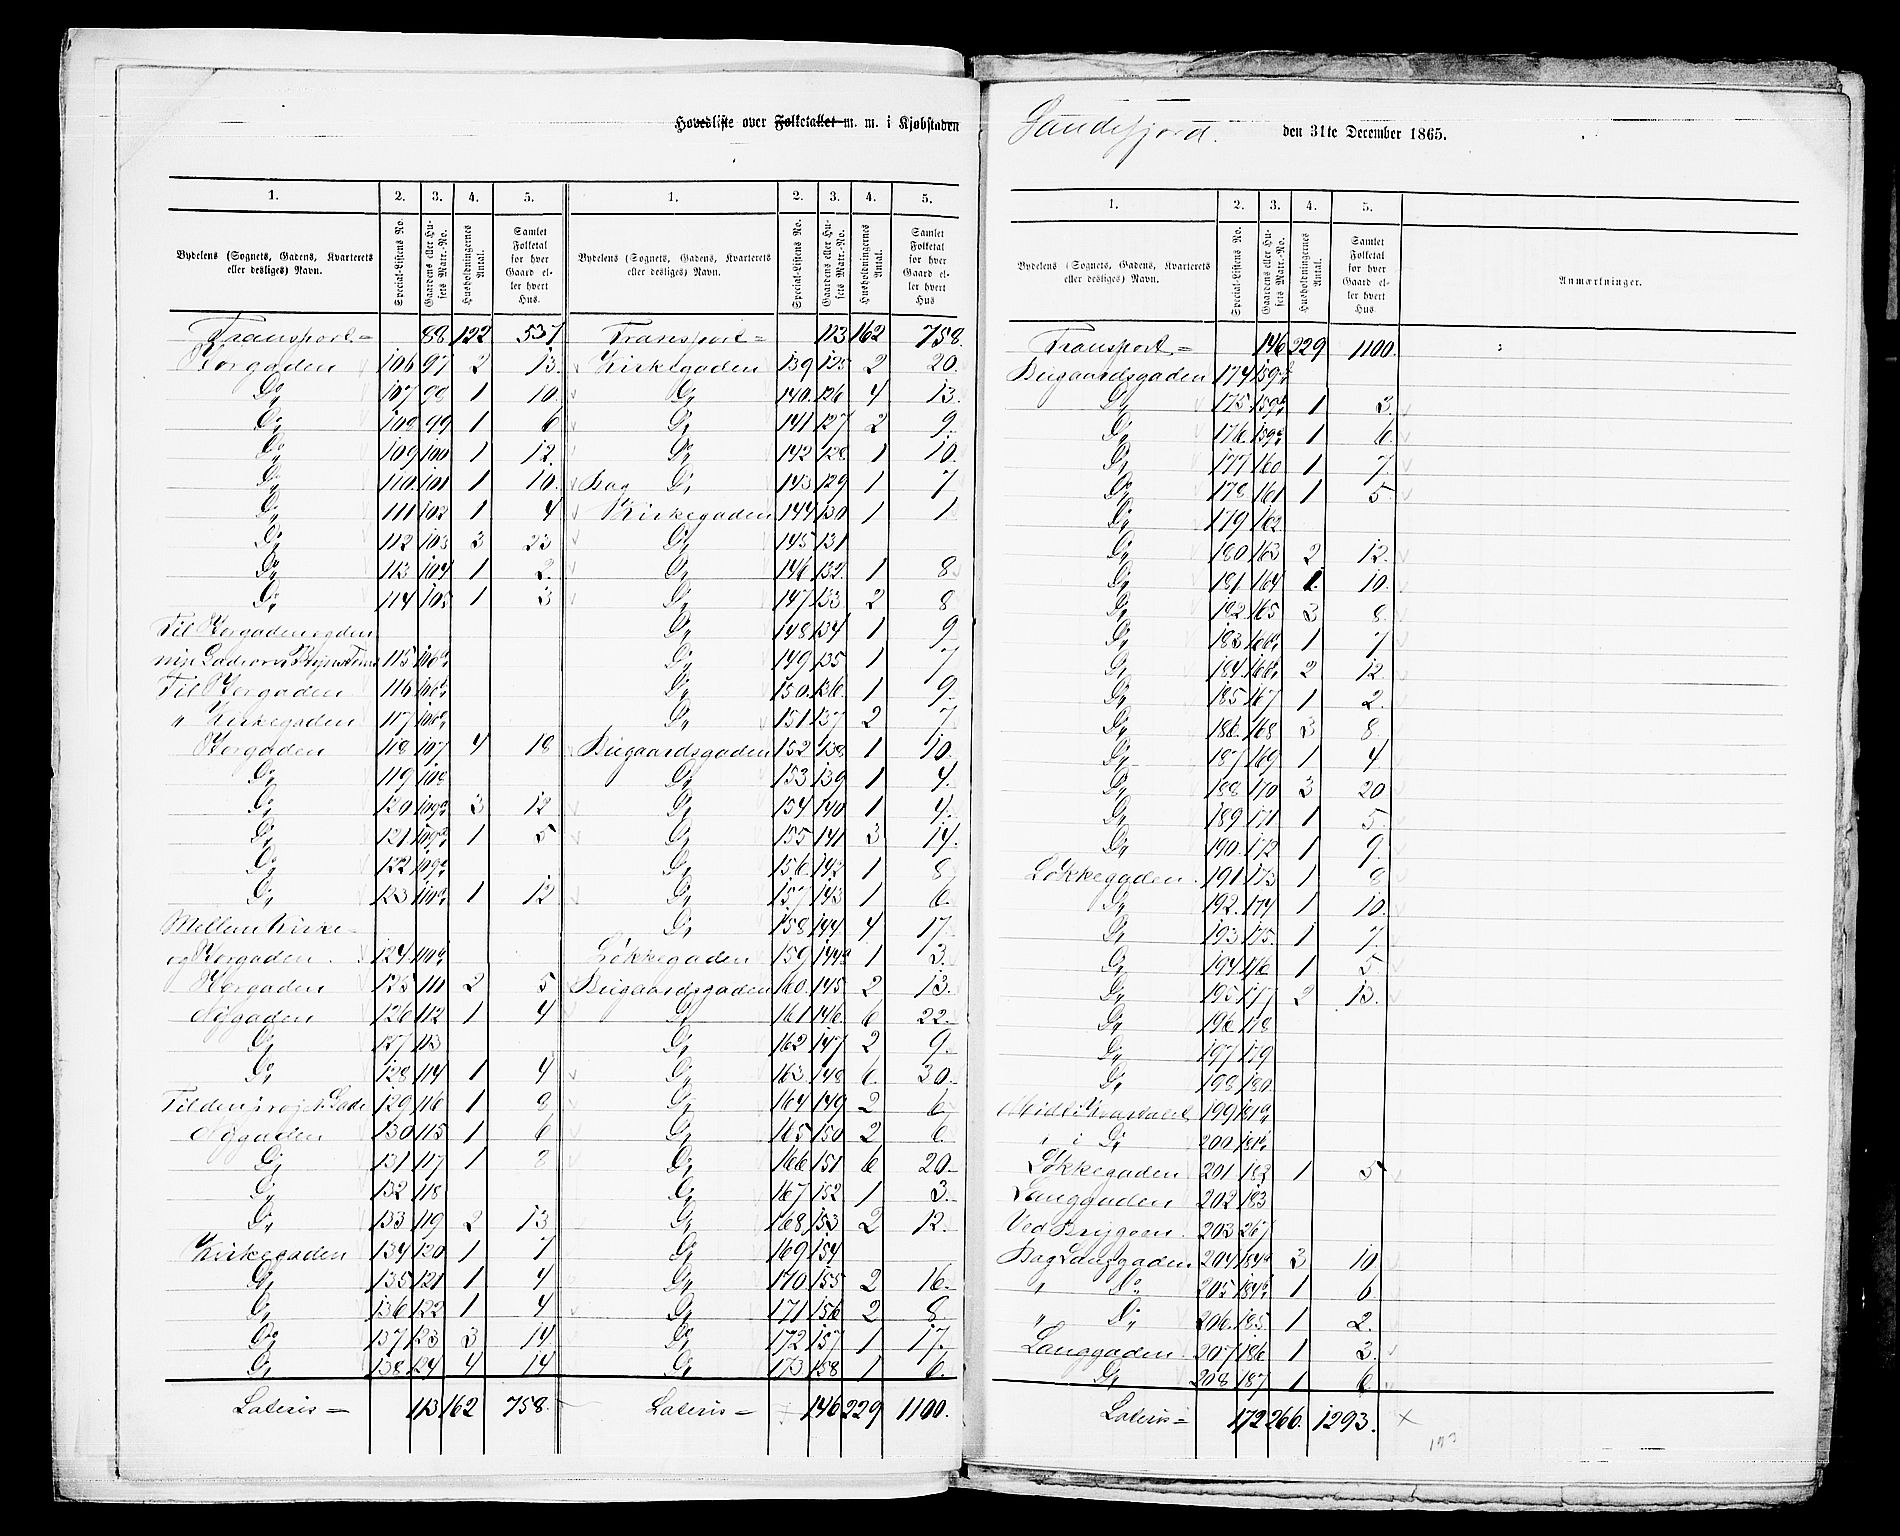 Hovedliste over Folketallet m. m. i Kjøbstaden Sandefjord. den 31te December 1865.
1. 2. 3. 4. 5. 1. 2. 3. 4. 5.
Bydelens (Sognets, Gadens, Kvarterets eller desliges) Navn. Special-Listens No. Gaardens eller Husets Matr.-No. Husholdningernes Antal. Samlet Folketal for hver Gaard eller hvert Hus. Bydelens (Sognets, Gadens, Kvarterets eller desliges) Navn. Special-Listens No. Gaardens eller Husets Matr.-No. Husholdningernes Antal. Samlet Folketal for hver Gaard eller hvert Hus
Transport = 88 122 537
106 97 2 13.
Do 107 98 1 10.
Do 108 99 1 6
Do 109 100 1 12.
Do 110 101 1 10.
Do 111 102 1 4
Do 112 103 3 23
Do 113 104 1 2.
Do 114 105 1 3
115 106
116 106
" Kirkegaden 117 106
118 107 4 18
Do 119 108
Do 120 109 3 12
Do 121 109 1 5
Do 122 109
Do 123 110 1 12
Mellem Kirke-
124 110
125 111 2 5
126 112 1 4
Do 127 113
Do 128 114 1 4
Til den proj. Gade 129 116 1 8
130 115 1 6
Do 131 117 1 8
Do 132 118
Do 133 119 2 13
Kirkegaden 134 120 1 7
Do 135 121 1 4
Do 136 122 1 4
Do 137 123 3 14
Do 138 124 4 14
Lateris = 113 162 758.
Transport = 113 162 758.
Kirkegaden 139 125 2 20.
Do 140. 126 4 13.
Do 141 127 2 9.
Do 142 128 1 10.
Bag Do 143 129 1 7
Kirkegaden 144 130 1 1
Do 145 131
Do 146 132 1 8
Do 147 133 2 8
Do 148 134 1 9
Do 149 135 1 7
Do 150. 136. 1 9.
Do 151 137 2 7
Bugaardsgaden 152 138 1 10.
Do 153 139 1 4.
Do 154 140 1 4.
Do 155 141 3 14.
Do 156. 142 1 8
Do 157 143 1 6.
Do 158 144 4 17.
Løkkegaden 159 144 1 3.
Bugaardsgaden 160. 145 2 13.
Do 161 146. 6 22.
Do 162 147 2 9.
Do 163. 148 6. 30.
Do 164 149 2 6
Do 165 150 2 6.
Do 166 151 6 20.
Do 167 152 1 3.
Do 168 153 2 12.
Do 169 154
Do 170 155 2 16.
Do 171 156 2 8.
Do 172 157 1 17.
Do 173 158 1 6.
Lateris = 146 229 1100.
1. 2. 3. 4. 5.
Bydelens (Sognets, Gadens, Kvarterets eller desliges) Navn. Special-Listens No. Gaardens eller Husets Matr.-No. Husholdningernes Antal. Samlet Folketal for hver Gaard eller hvert Hus Anmærkninger.
Transport = 146 229 1100.
Bugaardsgaden 174 159
Do 175. 159 1 3.
Do 176. 159 1 6.
Do 177 160 1 7
Do 178 161 1 5.
Do 179 162
Do 180. 163 2 12.
Do 181 164 1. 10.
Do 182 165 3 8.
Do 183 166 1 7
Do 184. 166 2 12.
Do 185 167 1 2.
Do 186. 168 3 8.
Do 187 169 1 4
Do 188 170 3 20
Do 189. 171 1 5.
Do 190. 172 1 9.
Løkkegaden. 191 173 1 8
Do 192. 174 1 10.
Do 193 175. 1 7.
Do 194 176 1 5
Do 195. 177 2 13.
Do 196 178
Do 197 179
Do 198 180.
Midt i Kvartalet 199 181
" i Do 200 181
Løkkegaden 201 182 1 5
Langgaden 202 183
Ved Bryggen. 203 267
Bag Langgaden 204 184 3 10.
" Do 205 184 1 6.
" Do 206. 185. 1 2.
Langgaden. 207 186 1 3.
Do 208 187 1 6
Lateris = 172 266. 1293.